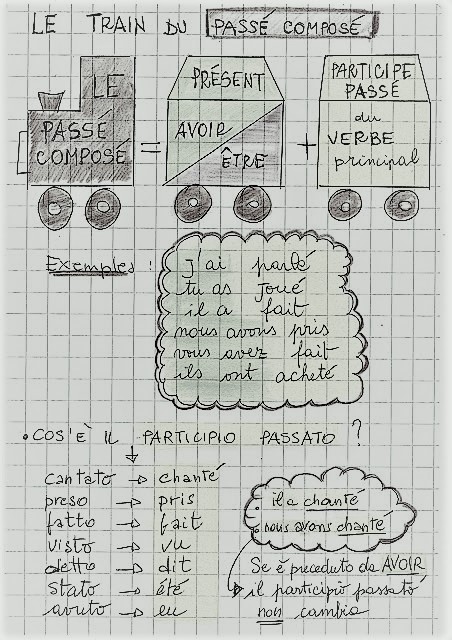 LE TRAIN DU PASSÉ COMPOSÉ
LE
PASSÉ
COMPOSÉ
=
PRÉSENT
AVOIR
ÊTRE
+
PARTICIPE
PASSÉ
du
VERBE
principal
Exemples :
j'ai parlé
tu as joué
il a fait
nous avons pris
vous avez fait
ils ont acheté
• COS'È IL PARTICIPIO PASSATO ?
cantato → chanté
preso → pris
fatto → fait
visto → vu
detto → dit
stato → été
avuto → eu
• il a chanté
• nous avons chanté
Se è preceduto da AVOIR
il participio passato
non cambia